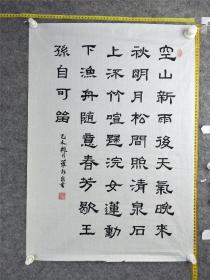 空山新雨後天氣晚來
秋明月松間照清泉石
上流竹喧歸浣女蓮動
下漁舟隨意春芳歇王
孫自可留
乙未